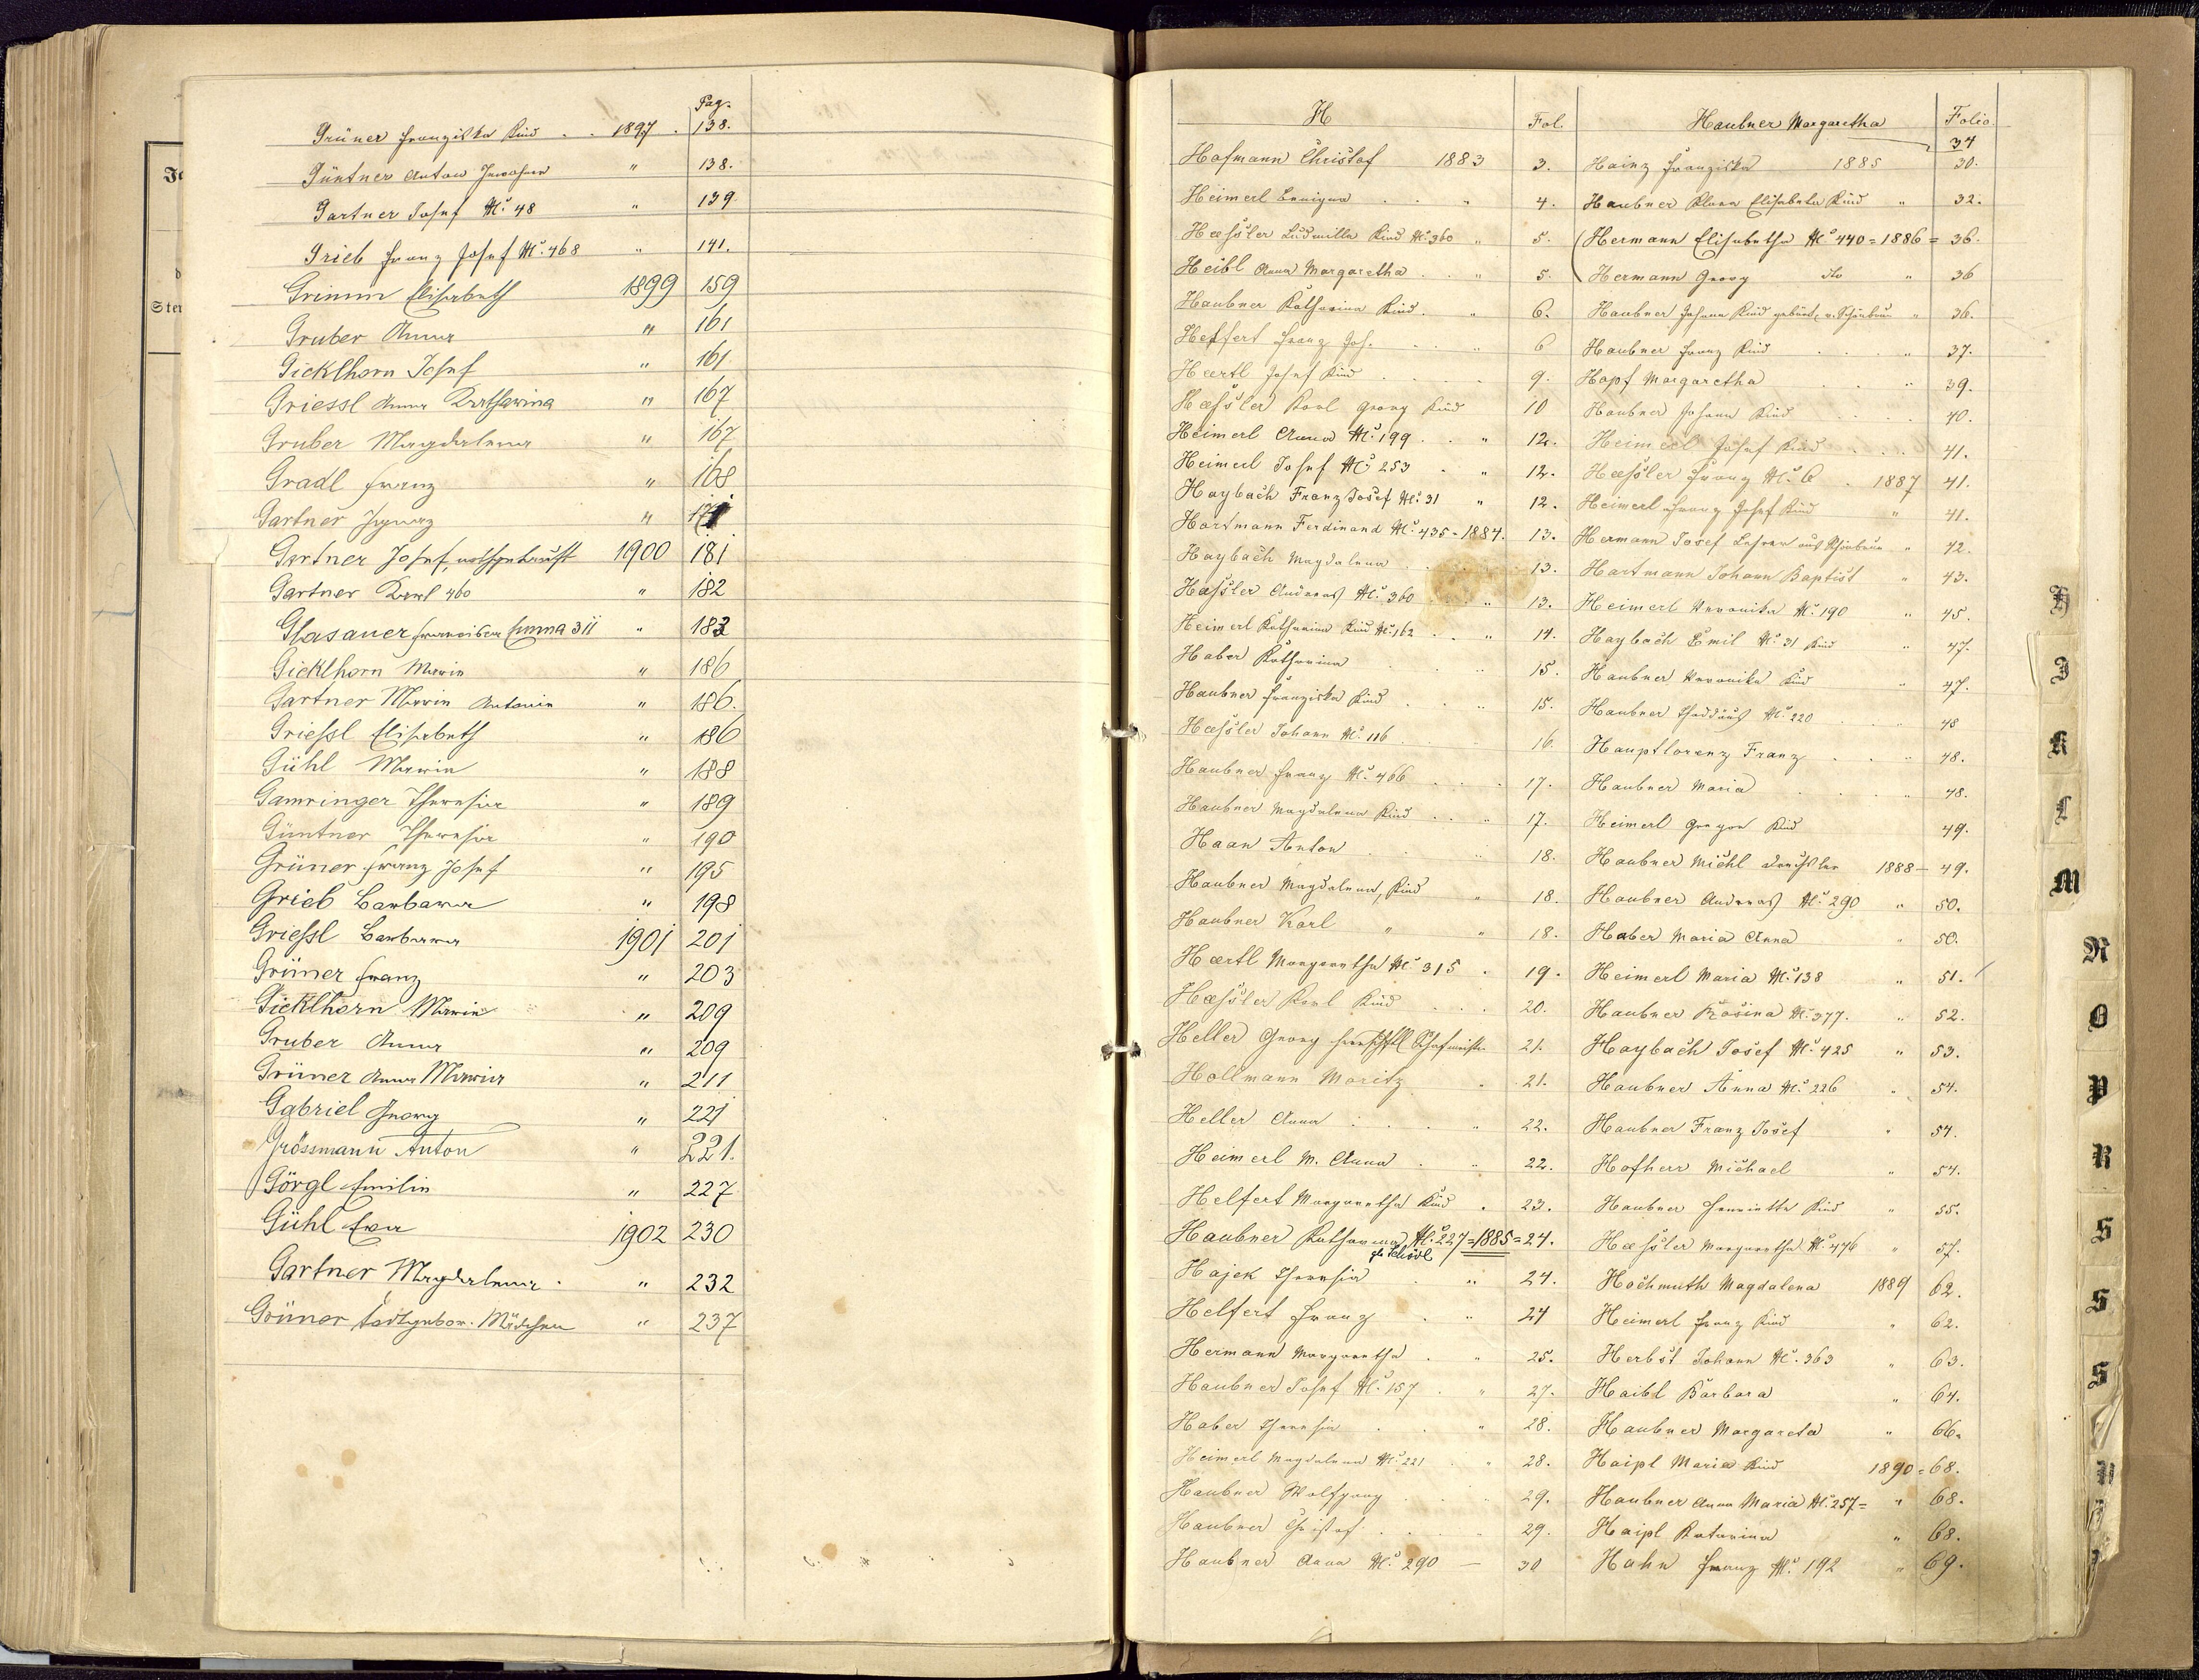 Pag.
Grüner Franziska Kind . . 1897 . 138.
Güntner Anton Inwohner " 138.
Gartner Josef No. 48 " 139
Grieb Franz Josef No. 468 " 141.
Grimm Elisabeth 1899 159
Gruber Anna " 161
Gicklhorn Josef " 161
Griessl Anna Katharina " 167
Gruber Magdalena " 167
Gradl Franz " 168
Gartner Ignaz "
Gartner Josef, nothgetauft 1900 181
Gartner Karl 460 " 182
Glasauer Franziska Emma 311 " 183
Gicklhorn Maria " 186
Gartner Maria Antonia " 186.
Grießl Elisabeth " 186
Gühl Maria " 188
Gamringer Theresia " 189
Güntner Theresia " 190
Grüner Franz Josef " 195
Grieb Barbara " 198
Grießl Barbara 1901 201
Grüner Franz " 203
Gicklhorn Maria " 209
Gruber Anna " 209
Grüner Anna Maria " 211
Gabriel Georg " 221
Grössmann Anton " 221.
Görgl Emilie " 227
Gühl Eva 1902 230
Gartner Magdalena . " 232
Grüner todtgebor. Mädchen " 237
H Fol.
Hofmann Christof 1883 3.
Heimerl Benigna . . " 4.
Haeßler Ludmilla Kind No. 360 " 5.
Heibl Anna Margaretha . . " 5.
Haubner Katharina Kind . " 6.
Helfert Franz Jos. . . " 6
Haertl Josef Kind . . . . 9.
Haeßler Karl Georg Kind 10
Heimerl Anna No. 199 . . " 12.
Heimerl Josef No. 253 . " 12.
Haybach Franz Josef No. 31 " 12.
Hartmann Ferdinand No. 435 = 1884. 13.
Haybach Magdalena . . . 13.
Haßler Andreas No. 360 . . " 13.
Heimerl Katharina Kind No. 162 . . " 14.
Haber Katharina . . . 15.
Haubner Franziska Kind . . " 15.
Haeßler Johann No. 116 . . 16.
Haubner Franz No. 466 . . . . 17.
Haubner Magdalena Kind . . " 17.
Haan Anton . . . " 18.
Haubner Magdalena, Kind " 18.
Haubner Karl " " 18.
Haertl Margaretha No. 315 . 19.
Haeßler Karl Kind . . . 20.
Heller Georg herrschftl Schafmeister 21.
Hollmann Moritz . 21.
Heller Anna . . . . " 22.
Heimerl M. Anna . . " 22.
Helfert Margaretha Kind . 23.
Haubner Katharina No. 227 = 1885 = 24.
Hajek Theresia . " 24.
Helfert Franz . " 24
Hermann Margaretha . " 25.
Haubner Josef No. 157 . " 27.
Haber Theresia . . " 28.
Heimerl Magdalena No. 221 . " 28.
Haubner Wolfgang . . . 29.
Haubner Christof . . . . 29.
Haubner Anna No. 290 — 30
Haubner Margaretha Folio
34
Hainz Franziska 1885 30.
Haubner Klara Elisabeta Kind " 32.
(Hermann Elisabetha No. 440 = 1886 = 36.
Hermann Georg do " 36
Haubner Johann Kind gebürt. v. Schönbrun " 36.
Haubner Franz Kind . . . " 37.
Hopf Margaretha . . " 39.
Haubner Johann Kind . . . 40.
Heimerl Josef Kind . . . 41.
Haeßler Franz No. 6 . 1887 41.
Heimerl Franz Josef Kind " 41.
Hermann Josef Lehrer aus Schönbrun " 42.
Hartmann Johann Baptist " 43.
Heimerl Veronika No. 190 " 45.
Haybach Emil No. 31 Kind " 47.
Haubner Veronika Kind " 47.
Haubner Thaddäus No. 220 . . . 48
Hauptlorenz Franz . . . 48.
Haubner Maria . . . . " 48.
Heimerl Gregor Kind 49.
Haubner Michl Drechsler 1888 — 49.
Haubner Andreas No. 290 " 50.
Haber Maria Anna " 50.
Heimerl Maria No. 138 " 51.
Haubner Rosina No. 377. " 52.
Haybach Josef No. 425 " 53.
Haubner Anna No. 226 . 54.
Haubner Franz Josef " 54.
Hofherr Michael " 54.
Haubner Henrietta Kind " 55.
Haeßler Margaretha No. 476 " 57.
Hochmuth Magdalena 1889 62.
Heimerl Franz Kind " 62.
Herbst Johann No. 363 " 63.
Haibl Barbara " 64.
Haubner Margareta " 66.
Haipl Maria Kind 1890 = 68.
Haubner Anna Maria No. 257 = " 68.
Haipl Katarina " 68.
Hahn Franz No. 192 " 69.
H
J
K
L
M
N
O
P
R
S
S
S